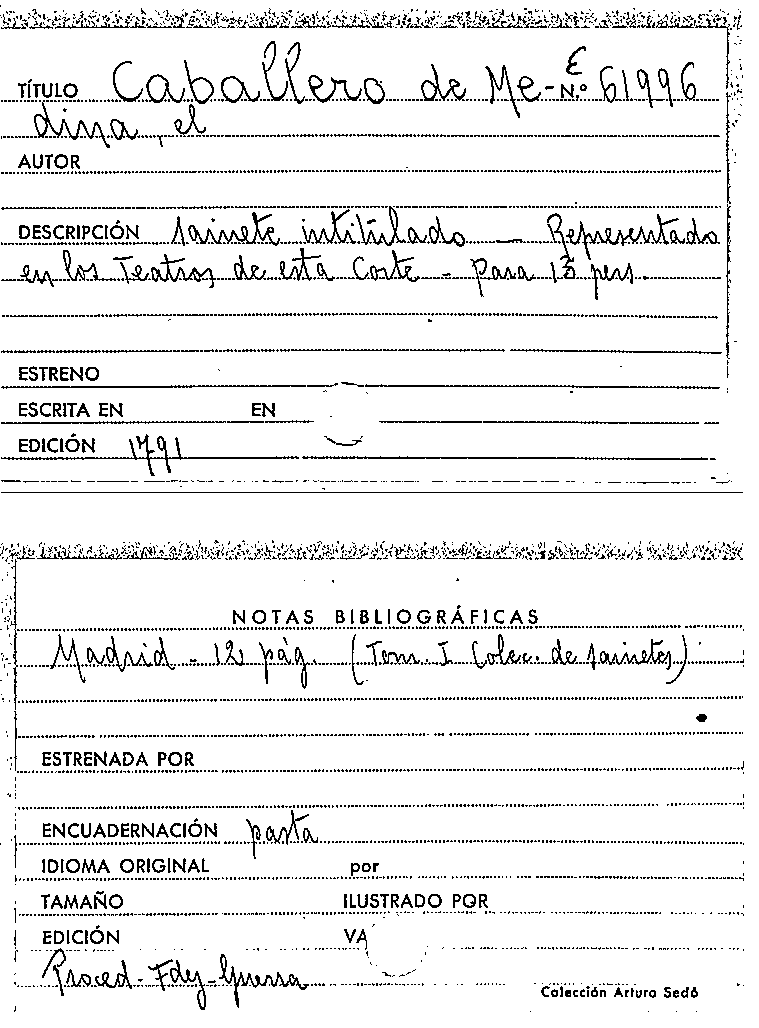 TÍTULO Caballero de Me- E N.º 61996
dina, el
AUTOR
DESCRIPCIÓN sainete intitulado — Representado
en los Teatros de esta Corte - para 13 pers.
ESTRENO
ESCRITA EN EN
EDICIÓN 1791
NOTAS BIBLIOGRÁFICAS
Madrid - 12 pág. (Tom. I Colec. de sainetes)
ESTRENADA POR
ENCUADERNACIÓN pasta
IDIOMA ORIGINAL por
TAMAÑO ILUSTRADO POR
EDICIÓN VA
Proced - Fdez - Guerra
Colección Arturo Sedó